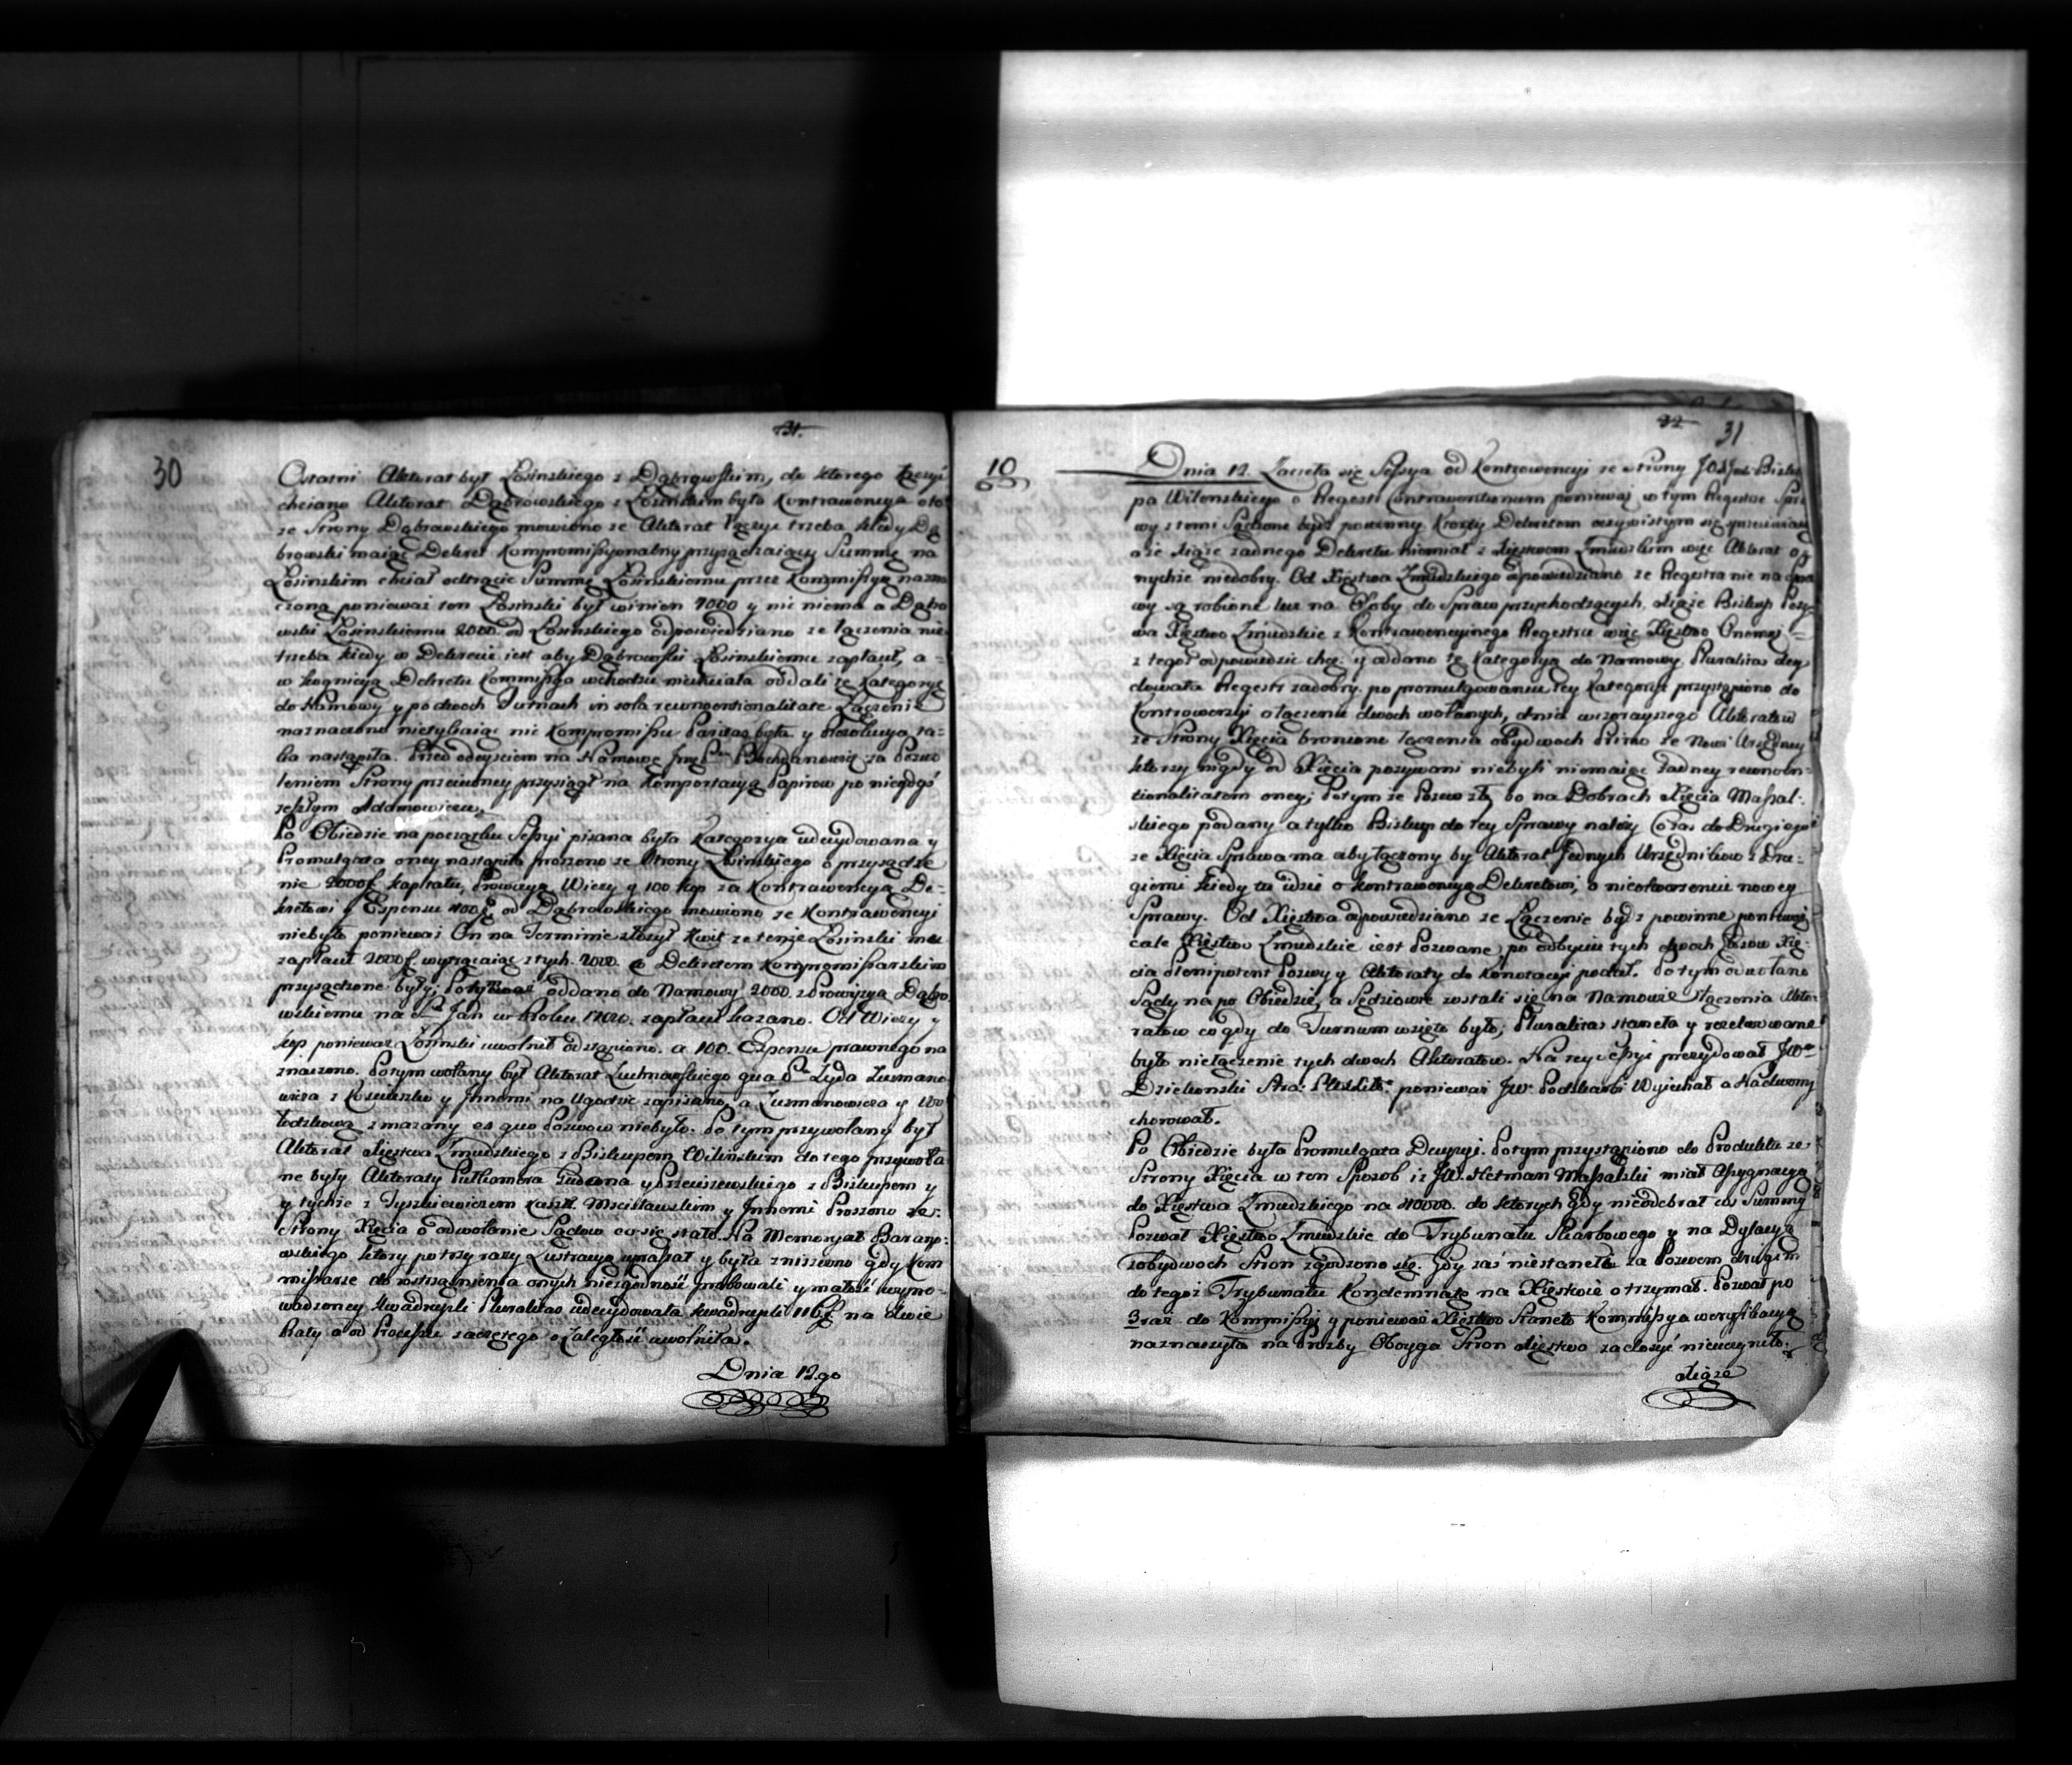 31.
30
Ostatni Aktorat był Łosinskiego z Dąbrowskim, do ktorego łączyć
chciano Aktorat Dąbrowskiego z Łosinskim było Kontrawencya oto
ze Strony Dąbrowskiego mowiono ze Aktorat łączyc trzeba kiedy Dą
browski maiąc Dekret Kompromissyonalny przysądzaiący Summę na
Łosinskim chciał odtrącic Summę Łosinskiemu przez Kommissyą nazna
czoną ponieważ ten Łosinski był winien 7000 y nic niema a Dąbro
wski Łosinskiemu 2000. od Łosinskiego odpowiedziano ze łączenia nie
trzeba kiedy w Dekrecie iest aby Dąbrowski Łosinskiemu zapłacił, a =
w kognicyą Dekretu Kommissya wchodzic niechciała oddali tę Kategoryą
do Namowy y po dwoch Turnach in sola Łączenie
naznaczono nietykaiąc nic Kompromissu Paritas była y Rezolucya ta-
ka nastąpiła. Przed odeysciem na Namowę Bochdanowicz za Pozwo
leniem Strony przeciwney przysiągł na Komportacyą Papirow po niegdyś
zeszłym Adamowiczu.
Po Obiedzie na początku Sessyi pisana była Kategorya udecydowana y
Promulgata oney nastąpiła proszono ze Strony Łosinskiego o przysądze
nie 2000 f. kapitału, Prowizyą Wieży y 100 kop za Kontrawencyą De-
kretowi y Espensu 400 f. od Dąbrowskiego mowiono ze Kontrawencyi
niebyło ponieważ On na Terminie złożył Kwit ze tenże Łosinski ma
zapłacić 2000 f. wytrącaiąc z tych. 2000. co Dekretem Kompromissarskim
przysądzone były; oddano do Namowy. 2000. z Prowizyą Dąbro
wskiemu na Sty Jan w Roku zapłacić kazano. Od Wieży y
kop ponieważ Łosinski uwolnił odstąpiono. a 100. Espensu prawnego na
znaczono. Potym wołany był Aktorat qua Pta Lyda
wicza z Kosciuszko y Jnnemi na Ugodzie zapisano, a
zmazany ex quo Pozwow niebyło. Po tym przywołany był
Aktorat Xięstwa Zmudzkiego z Biskupem Wilenskim do tego przywoła
ne były Aktoraty Puttkamera y z Biskupem y
y tychże z Tyszkiewiczem Kaszt. Mscisławskim y Jnnemi Proszono ze =
Strony Xięcia o odwołanie Sądow co się stało. Na Memoryał Barano-
wskiego ktory po trzy razy Lustracyą y była zniszczono gdy Kom
missarze do onych y małość wypro-
wadzoney kwadrupli Pluralitas udecydowała kwadrupli 116 f. na dwie
Raty a od Processu zaczętego o Zaległość uwolniła.
Dnia 12.go
32 31
10 Dnia 12. Zaczeła się Sessya od Kontrowencyi ze strony JOXJmci Bisku
pa Wilenskiego o Regestr Contraventionum ponieważ w tym Regestrze Spra
wy z temi Sądzone bydź powinny Krorzy Dekretom oczywistym się sprzeciwiaią
a ze Xiąże zadnego Dekretu niemiał z Xięstwem Zmudzkim więc Aktorat o
nychże niedobry. Od Xięstwa Zmudzkiego odpowiedziano ze Regestra nie na Spra
wy są robione lecz na Osoby do Spraw przychodzących. Xiąże Biskup Pozy-
wa Xięstwo Zmudzkie z Kontrawencyinego Regestru więc Xięstwo Onemuż =
z tegoż odpowiedzic chce: y oddano tę Kategoryą do Namowy. Pluralitas decy
dowała Regestr zadobry. po promulgowaniu tey Kategoryi przystąpiono do
Kontrowersyi o łączeniu dwoch wołanych, dnia wczorayszego Aktoratow
ze Strony Xięcia bronione łączenia obydwoch Primo ze Nowi Urzędnicy
ktorzy nigdy od Xięcia pozywani niebyli niemaiąc żadney
oney; Potym ze Pozew zły, bo na Dobrach Xięcia Massal-
skiego podany a tylko Biskup do tey Sprawy należy Coraz do Drugiego
ze Xięcia Sprawa ma aby łączony by Aktorat Jednych Urzędnikow z Dru-
giemi kiedy tu idzie o kontrawencyą Dekretowi, o nieotworzeniu nowey
Sprawy. Od Xięstwa odpowiedziano ze Łączenie bydź powinne ponieważ
całe Xięstwo Zmudzkie iest Pozwane, po odbyciu tych dwoch Głosow Xię-
cia Plenipotent Pozwy y Aktoraty do Konotacyi podał. Potym odwołano
Sądy na po Obiedzie, a Sędziowie zostali się na Namowie złączenia Akto-
ratow co gdy do Turnum wzięto było; Pluralitas staneła y rezelwowane
było niełączenie tych dwoch Aktoratow. Na tey Sessyi prezydował JW
Dziekonski ponieważ JW. Podskarbi Wyiechał a Nadworny
chorował.
Po Obiedzie była Promulgata Decyzyi. Potym przystąpiono do Produktu ze
Strony Xięcia w ten Sposob iż JW. Hetman Massalski miał Assygnacyą
do Xięstwa Zmudzkiego na 10000. do ktorych gdy nieodebrał cos Summy
Pozwał Xięstwo Zmudzkie do Trybunału Skarbowego y na Dylacyą
zobydwoch Stron zgodzono się. Gdy zaś niestaneło za Pozwem drugim
do tegoż Trybunału Kondemnatę na Xięstwie otrzymał. Pozwał po
3 raz do Kommissyi y ponieważ Xięstwo Staneło Kommissya weryfikacyą
naznaczyła na Prozby Oboyga Stron Xięstwo zadosyć nieuczyniło.
Xiąże